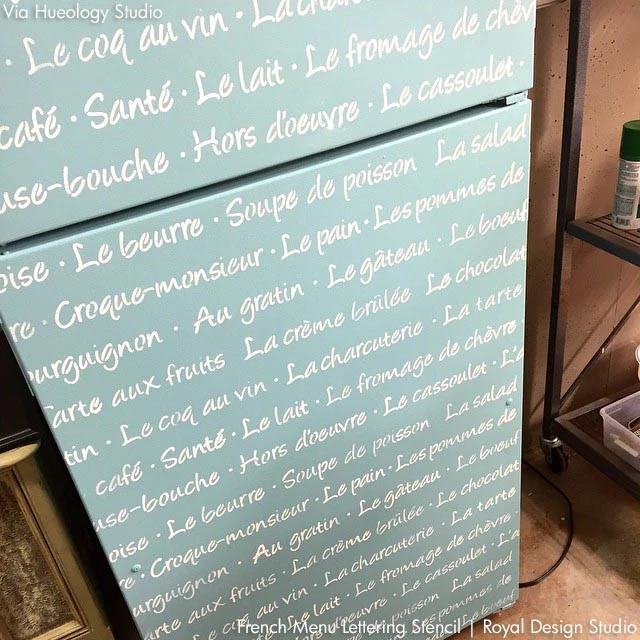 Via Hueology Studio
La cha
· Le coq au vin ·
café · Santé · Le lait · Le fromage de chèv
use-bouche · Hors d'oeuvre · Le cassoulet ·
oise · Le beurre · Soupe de poisson La salad
re · Croque-monsieur · Le pain · Les pommes de
ourguignon · Au gratin · Le gâteau · Le boeuf
arte aux fruits La crème brûlée Le chocolat
tin · Le coq au vin · La charcuterie · La tarte
café · Santé · Le lait · Le fromage de chèvre
use-bouche · Hors d'oeuvre · Le cassoulet · L'a
oise · Le beurre · Soupe de poisson La salad
re · Croque-monsieur · Le pain · Les pommes de
ourguignon · Au gratin · Le gâteau · Le boeuf
arte aux fruits · La crème brûlée · Le chocolat
in · Le coq au vin · La charcuterie · La tarte
Le lait · Le fromage de chèvre
Hors d'oeuvre · Le cassoulet · L'a
La salad
de
Le boeuf
French Menu Lettering Stencil | Royal Design Studio